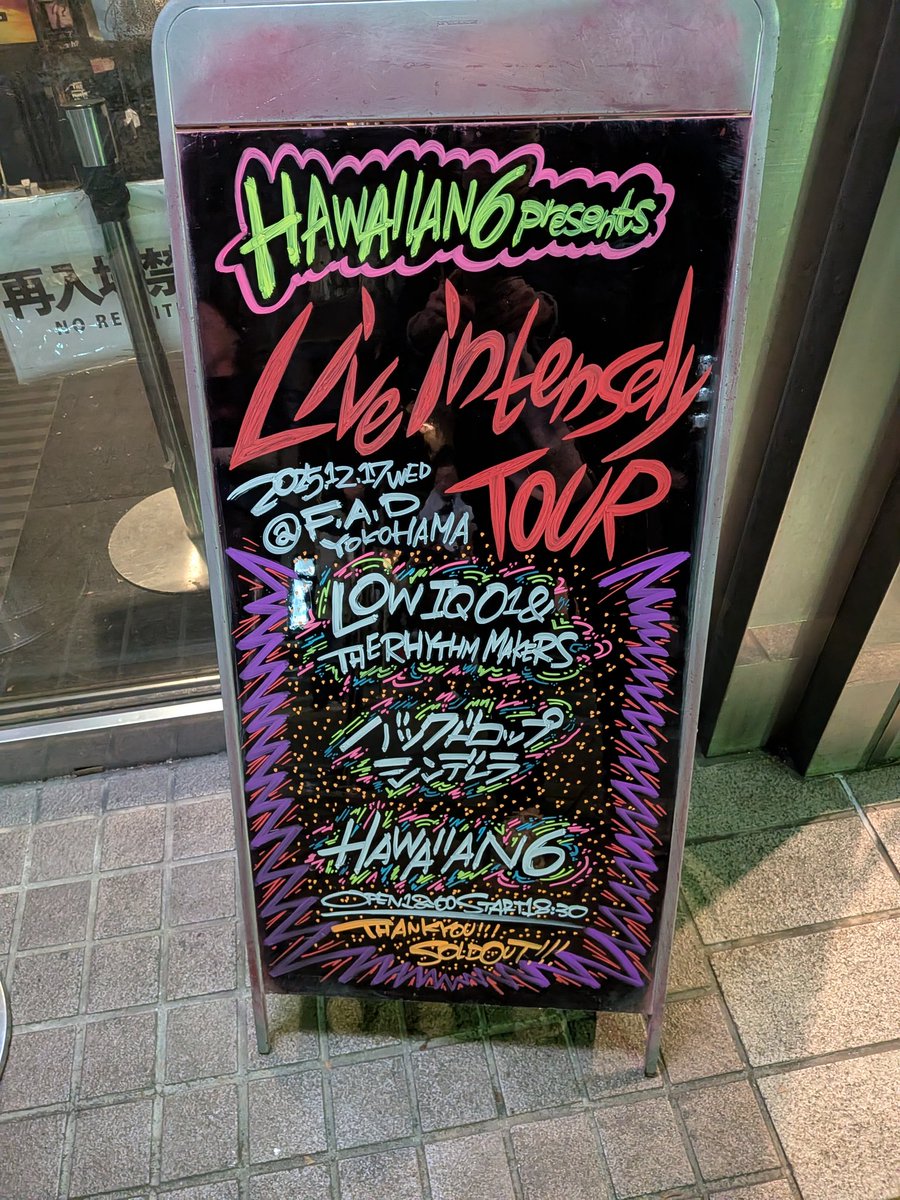 HAWAIIAN6 presents
Live intensely
TOUR
2025.12.17 WED
@F.A.D
YOKOHAMA
LOW IQ 01 &
THE RHYTHM MAKERS
バックドロップ
シンデレラ
HAWAIIAN6
OPEN 18:00 START 18:30
THANK YOU!!!
SOLD OUT!!!
再入場禁
NO RE IT